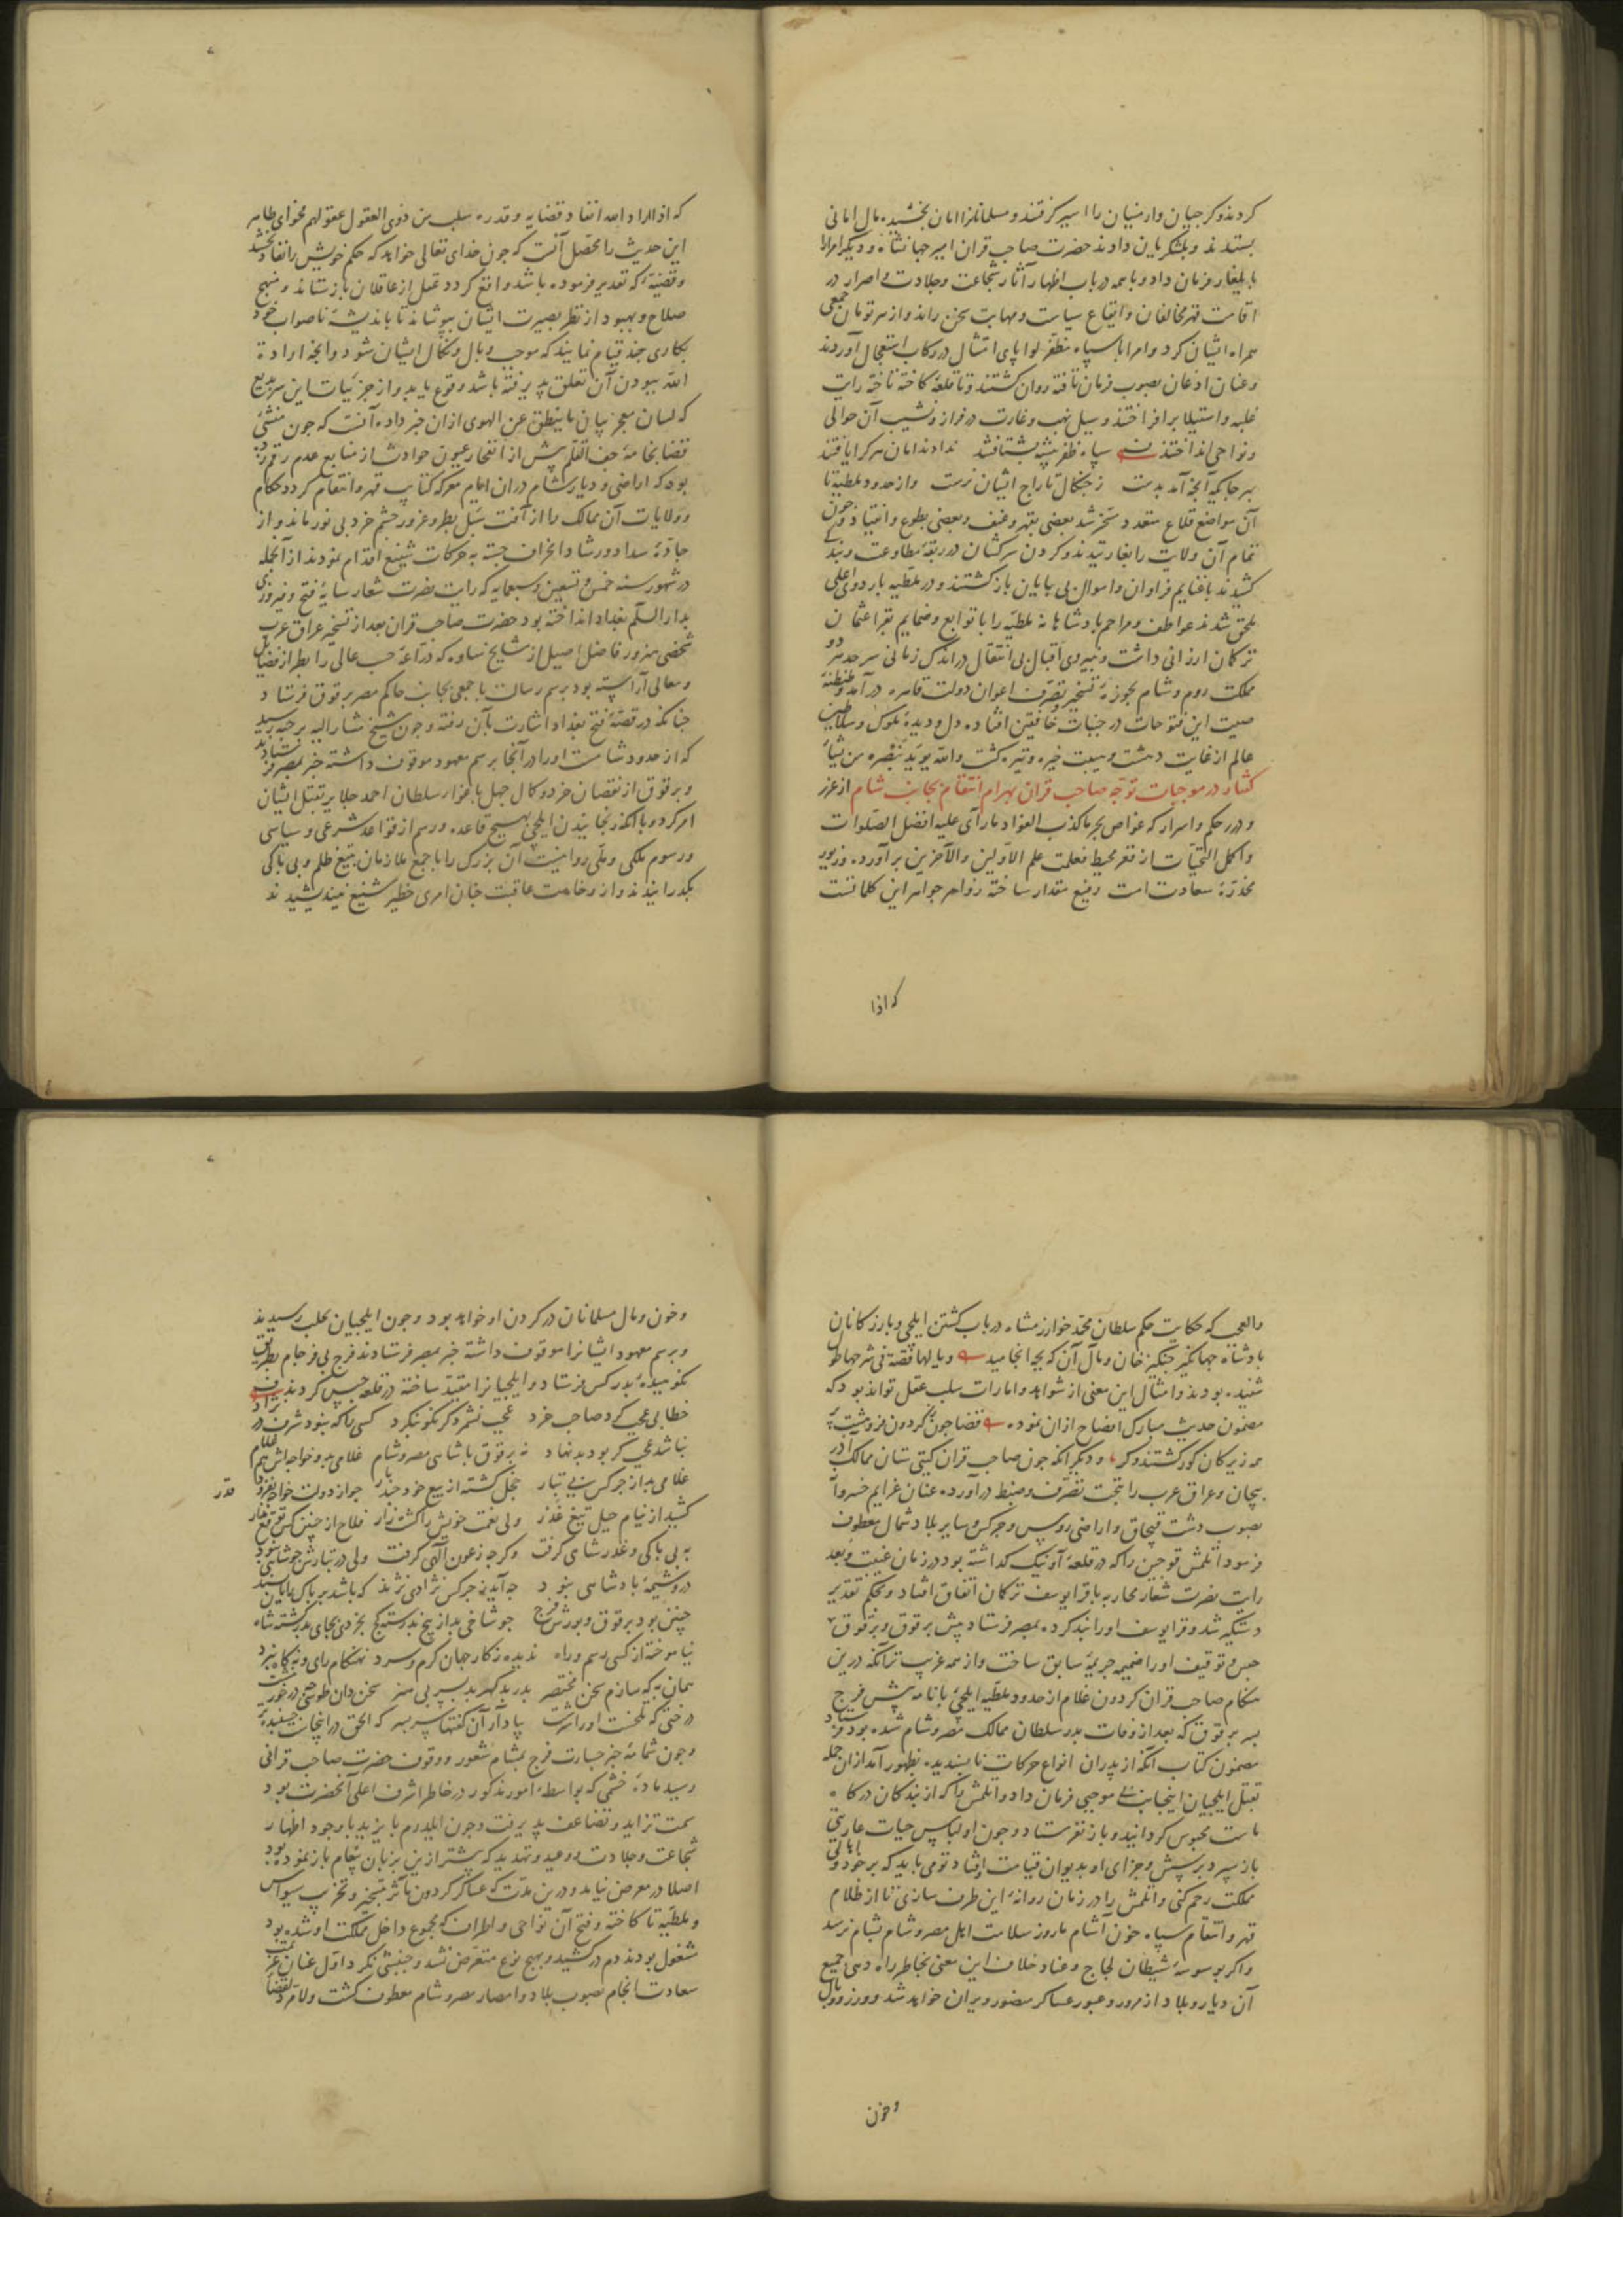 کردند و کرجیان و ارمنیان را اسیر گرفتند و مسلمانانرا امان بخشیده مال امانی
بستدند و بلشکریان دادند حضرت صاحب قران امیر جهانشاه و دیگر امرا را
بایلغار فرمان داد و با همه در باب اظهار آثار شجاعت و جلادت و اصرار در
اقامت قهر مخالفان و ایقاع سیاست و مهابت سخن راند و از هر تومان جمعی
همراه ایشان کرد و امرا با سپاه مظفر لوا پای امتثال در رکاب استعجال آوردند
و عنان اذعان بصوب فرمان تافته روان گشتند و تا قلعه کاخته تاخته رایت
غلبه و استیلا برافراختند و سیل نهب و غارت در فراز و نشیب آن حوالی
و نواحی انداختند سپاه ظفر پیشه بشتافتند ندادند امان هر کرا یافتند
بهر جا که آنچه آمد بدست ز چنگال تاراج ایشان نرست و از حدود ملطیه تا
آن مواضع قلاع متعدد مسخر شد بعضی بقهر و عنف و بعضی بطوع و انقیاد و چون
تمام آن ولایت را بغارتیدند و گردن سرکشان در ربقه مطاوعت و بندگی
کشیدند با غنایم فراوان و اموال بی پایان بازگشتند و در ملطیه باردوی اعلی
ملحق شدند عواطف و مراحم پادشاهانه ملطیه را با توابع و ضمایم بقرا عثمان
ترکمان ارزانی داشت و نیروی اقبال بی انتقال در اندک زمانی سرحد هر دو
مملکت روم و شام بحوزه تسخیر و تصرف اعوان دولت قاهره درآمد و طنطنه
صیت این فتوحات در جنبات خافقین افتاده دل و دیده ملوک و سلاطین
عالم از غایت دهشت و هیبت خیره و تیره گشت والله یؤید بنصره من یشاء
گفتار در موجبات توجه صاحب قران بهرام انتقام بجانب شام از غرر
و درر حکم و اسرار که غواص بحر ما کذب الفؤاد ما رآی علیه افضل الصلوات
و اکمل التحیات از قعر محیط فعلمت علم الاولین والآخرین برآورده و زیور
مخدره سعادت امت رفیع مقدار ساخته زواهر جواهر این کلماتست
که اذا
که اذا اراد الله انفاذ قضایه و قدره سلب من ذوی العقول عقولهم فحوای ظاهر
این حدیث را محصل آنست که چون خدای تعالی خواهد که حکم خویش را نفاذ بخشد
و قضیه که تقدیر فرموده باشد واقع گردد عقل از عاقلان بازستاند و منهج
صلاح و بهبود از نظر بصیرت ایشان بپوشاند تا باندیشه ناصواب خود
بکاری چند قیام نمایند که موجب وبال و نکال ایشان شود و آنچه اراده
الله ببودن آن تعلق پذیرفته باشد وقوع یابد و از جزئیات این سر بدیع
که لسان معجز بیان ما ینطق عن الهوی ازان خبر داده آنست که چون منشئ
قضا بخامه جف القلم پیش از انفجار عیون حوادث از منابع عدم رقم زده
بود که اراضی و دیار شام دران ایام معرکه کتایب قهر و انتقام گردد حکام
و ولایات آن ممالک را از آفت سبل بطر و غرور چشم خرد بی نور ماند و از
جاده سداد و رشاد انحراف جسته به حرکات شنیع اقدام نمودند از آنجمله
در شهور سنه خمس و تسعین و سبعمایه که رایت نصرت شعار سایه فتح و فیروزی
بدار السلام بغداد انداخته بود حضرت صاحب قران بعد از تسخیر عراق عرب
شخصی هنرور فاضل اصیل از مشایخ ساوه که دراعه حسب عالی را بطراز فضایل
و معالی آراسته بود برسم رسالت با جمعی بجانب حاکم مصر برقوق فرستاد
چنانکه در قصه فتح بغداد اشارت بآن رفته و چون شیخ مشار الیه برحبه رسید
که از حدود شامست او را در آنجا برسم معهود موقوف داشته خبر بمصر فرستادند
و برقوق از نقصان خرد و کمال جهل باغوای سلطان احمد جلایر بقتل ایشان
امر کرد و با آنکه رنجانیدن ایلچی بهیچ قاعده و رسم از قواعد شرعی و سیاسی
و رسوم ملکی و ملی روا نیست آن بزرگ را با جمع ملازمان بتیغ ظلم و بی باکی
بگذرانیدند و از وخامت عاقبت چنان امری خطیر شنیع نیندیشیدند
والعجب که حکایت حکم سلطان محمد خوارزمشاه در باب کشتن ایلچی و بازرگانان
پادشاه جهانگیر چنگیز خان و مآل آن که بچه انجامید و یا لها قصة فی شرحها طول
شنیده بودند و امثال این معنی از شواهد و امارات سلب عقل تواند بود که
مضمون حدیث مبارک افصاح ازان نموده قضا چون ز گردون فرو هشت پر
همه زیرکان کور گشتند و کر و دیگر آنکه چون صاحب قران گیتی ستان ممالک آذر
بیجان و عراق عرب را بتحت تصرف و ضبط درآورده عنان عزایم خسروانه
بصوب دشت قبچاق و اراضی روس و چرکس و سایر بلاد شمال معطوف
فرمود اتلمش قوچین را که در قلعه آونیک گذاشته بود در زمان غیبت و بعد
رایت نصرت شعار محاربه با قرا یوسف ترکمان اتفاق افتاد و بحکم تقدیر
دستگیر شد و قرا یوسف او را بند کرده بمصر فرستاد پیش برقوق و برقوق
حبس و توقیف او را ضمیمه جریمه سابق ساخت و از همه غریب تر آنکه درین
هنگام صاحب قران گردون غلام از حدود ملطیه ایلچی با نامه پیش فرج
پسر برقوق که بعد از وفات پدر سلطان ممالک مصر و شام شده بود فرستاد
مضمون کتاب آنکه از پدرت انواع حرکات ناپسندیده بظهور آمد ازان جمله
بقتل ایلچیان اینجانب بی موجبی فرمان داد و اتلمش را که از بندگان درگاه
ماست محبوس گردانید و باز نفرستاد و چون او لباس حیات عاریتی
باز سپرد پرسش و جزای او بدیوان قیامت افتاد تو می باید که بر خود و اهالی
مملکت رحم کنی و اتلمش را در زمان روانه این طرف سازی تا از ظلام
قهر و انتقام سپاه خون آشام ما روز سلامت اهل مصر و شام بشام نرسد
و اگر بوسوسه شیطان لجاج و عناد خلاف این معنی بخاطر راه دهی جمیع
آن دیار و بلاد از مرور و عبور عساکر منصور ویران خواهد شد و وزر و وبال
و خون
و خون و مال مسلمانان در گردن او خواهد بود و چون ایلچیان بحلب رسیدند
و برسم معهود ایشانرا موقوف داشته خبر بمصر فرستادند فرج بی فرجام بطریق
نکوهیده پدر کس فرستاد و ایلچیانرا مقید ساخته در قلعه حبس کردند
خطایی عجب کرد صاحب خرد عجب نشمرد گر نکو بنگرد کسی را که نبود شرف در نژاد
نباشد عجب گر بود بدنهاد نه برقوق با شاهی مصر و شام غلامی بد و خواجه اش هم غلام
غلامی بد از چرکس بی تبار خجل گشته از بیع خود چند بار چو از دولت خواجه بفزود قدر
کشید از نیام حیل تیغ غدر ولی نعمت خویش را کشت زار فلاح از چنین کس توقع مدار
به بی باکی و غدر شاهی گرفت وگرچه ز عون آلهی گرفت ولی در تبارش چو شاهی نبود
درو شیمه پادشاهی نبود چه آید ز چرکس نژادی نژند که باشد بر پاک رایان پسند
چنین بود برقوق و پورش فرج چو شاخی بد از بیخ بد رسته کج بخردی بجای پدر گشته شاه
نیاموخته از کسی رسم و راه ندیده ز کار جهان گرم و سرد نه هنگام رای و نه گاه نبرد
همان به که سازم سخن مختصر پدر بد گهر بد پسر بی هنر سخن دان طوسی درین
درختی که تلخست او را سرشت بیاد آر آن گفتها سربسر که الحق در اینجاست پسندیده تر
و چون شمامه خبر جسارت فرج بمشام شعور و وقوف حضرت صاحب قرانی
رسید ماده خشمی که بواسطه امور مذکور در خاطر اشرف اعلی آنحضرت بود
سمت تزاید و تضاعف پذیرفت و چون ایلدرم بایزید با وجود اظهار
شجاعت و جلادت و وعید و تهدید که پیشتر ازین بزبان پیغام باز نموده بود
اصلا در معرض نیامد و درین مدت که عساکر گردون مآثر بتسخیر و تخریب سیواس
و ملطیه تا کاخته و فتح آن نواحی و اطراف که مجموع داخل مملکت او شده بود
مشغول بودند دم درکشید و بهیچ نوع متعرض نشد و جنبشی نکرد اول عنان عزیمت
سعادت انجام بصوب بلاد و امصار مصر و شام معطوف گشت ولا مرد لقضا